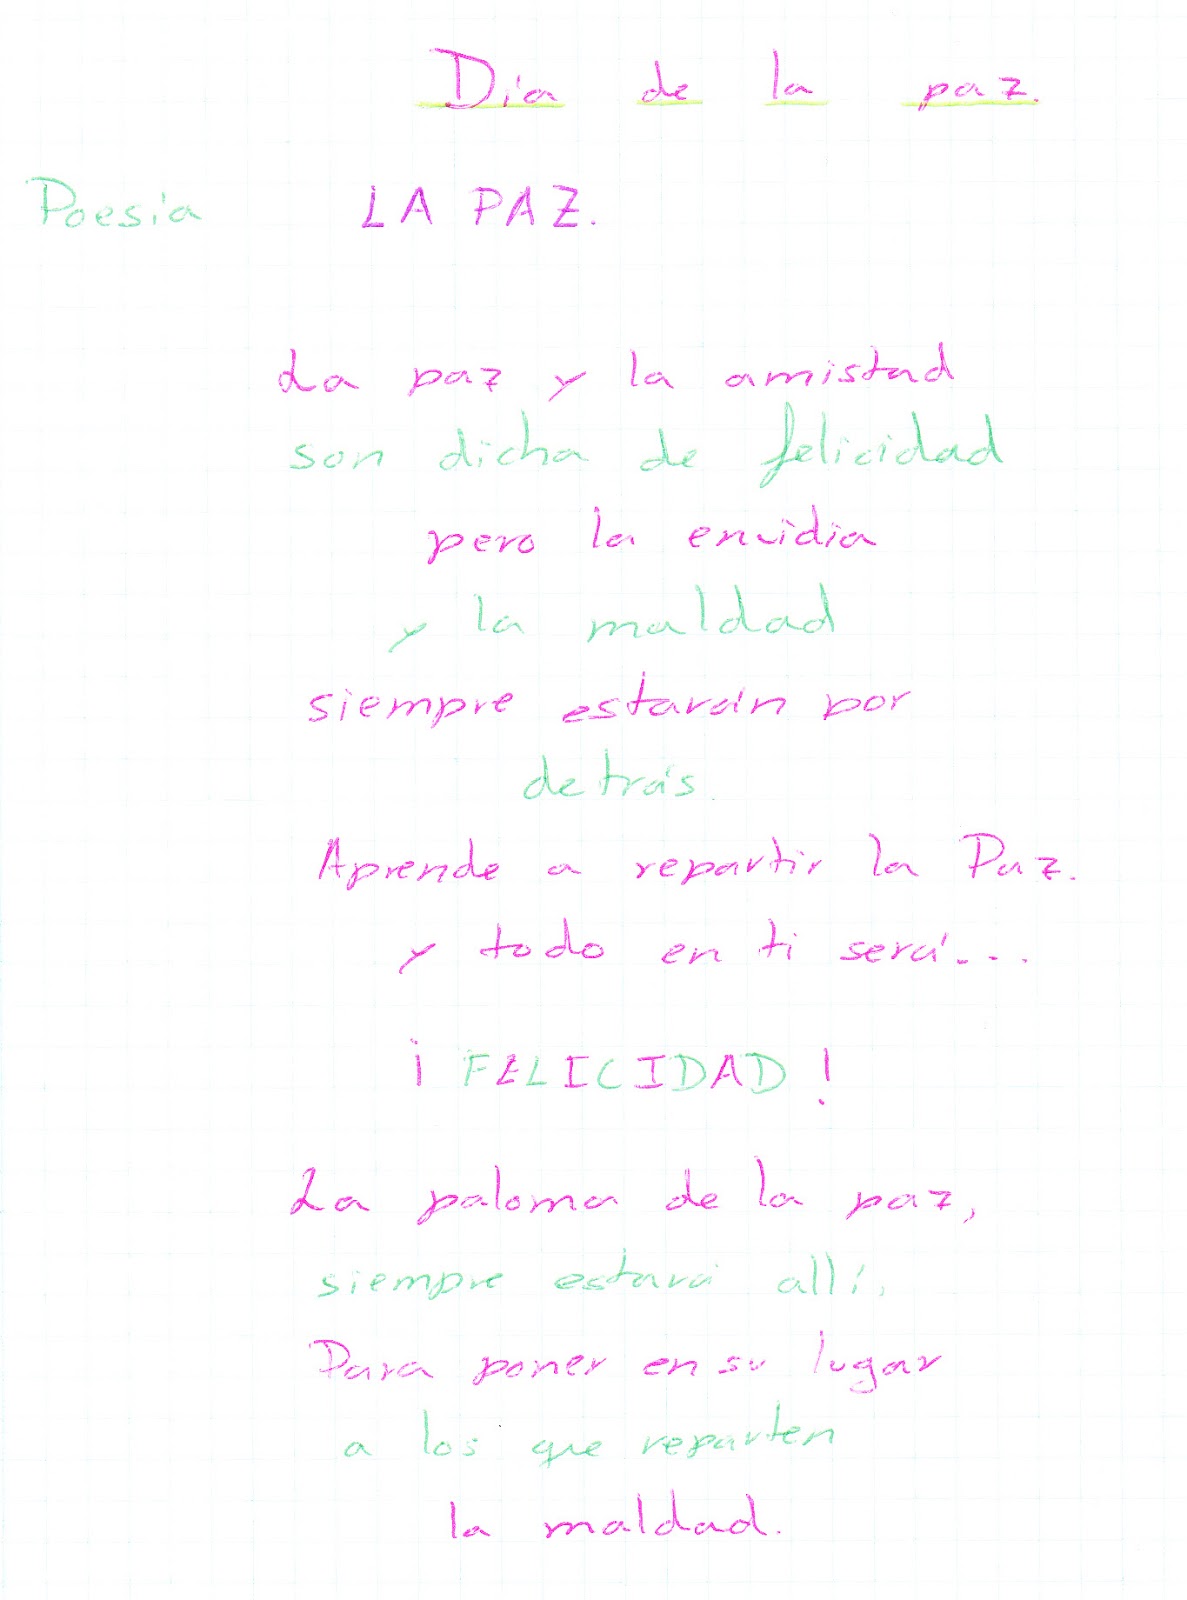 Día de la paz.
Poesía LA PAZ.
La paz y la amistad
son dicha de felicidad
pero la envidia
y la maldad
siempre estarán por
detrás.
Aprende a repartir la Paz.
y todo en ti será...
¡FELICIDAD!
La paloma de la paz,
siempre estará allí,
Para poner en su lugar
a los que reparten
la maldad.